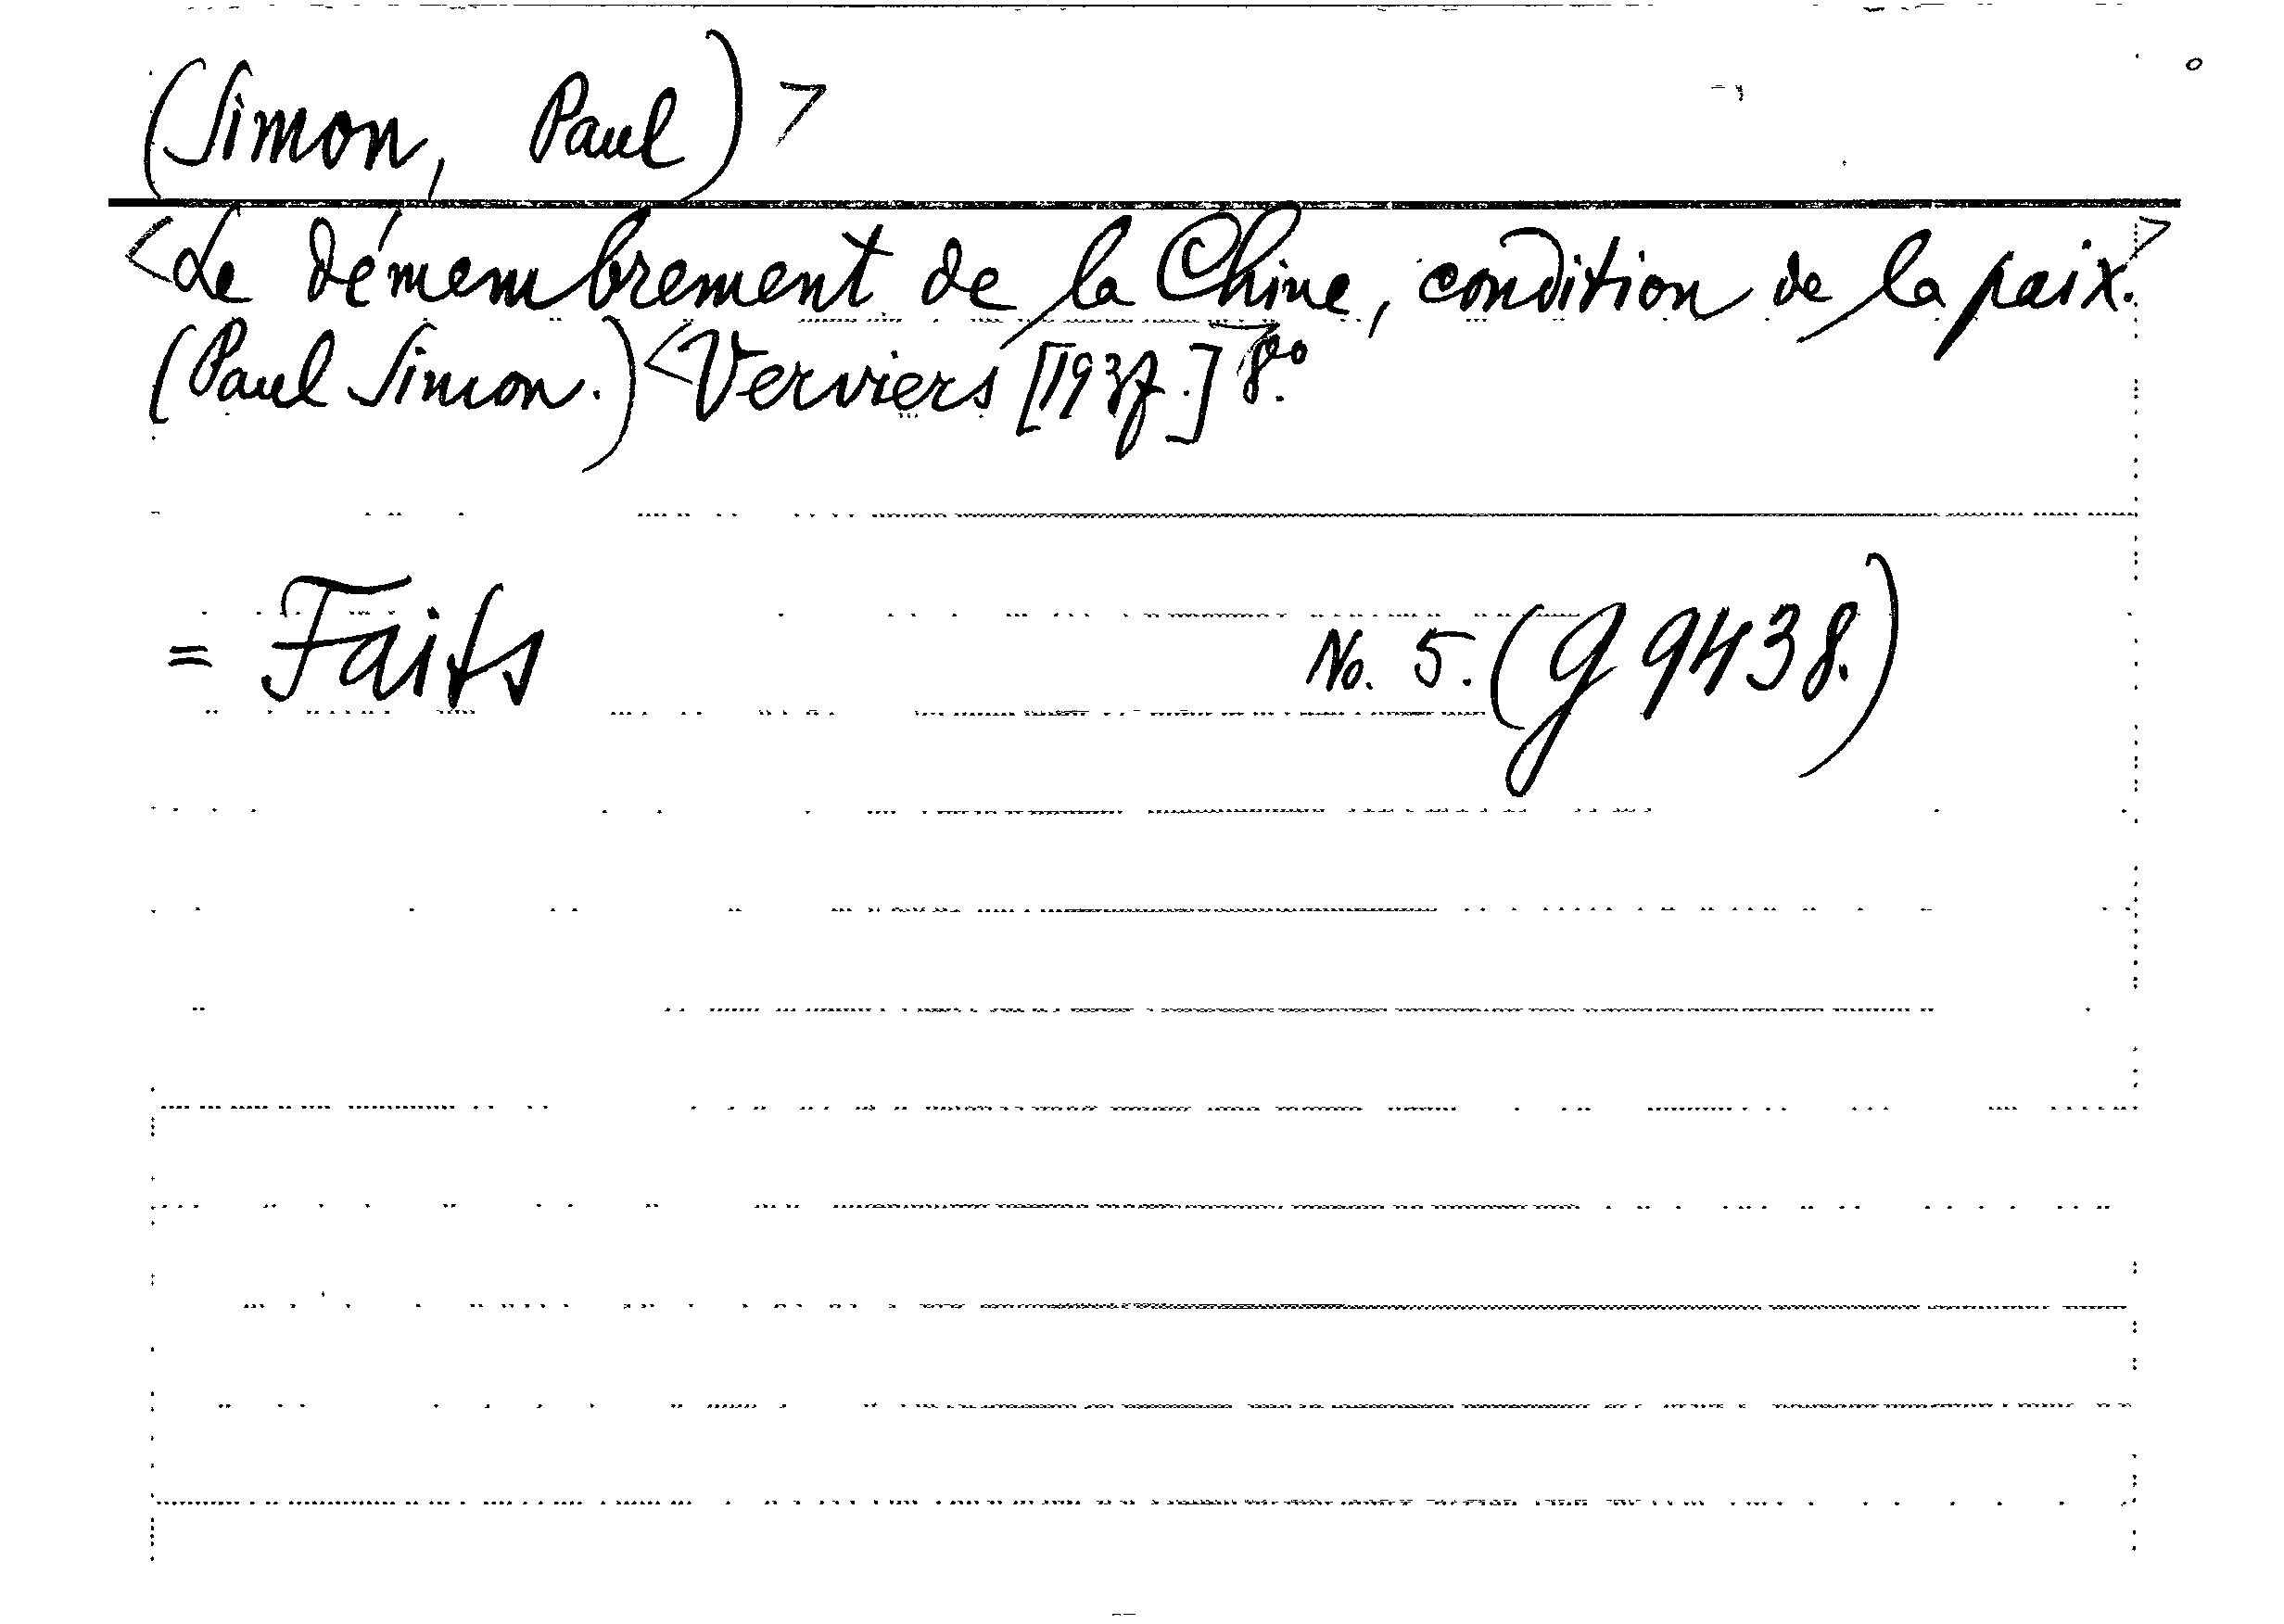 (Simon, Paul)>
<Le démembrement de la Chine, condition de la paix.>
(Paul Simon.) <Verviers [1937.]> 8°.
= Faits No. 5. (g 9438.)